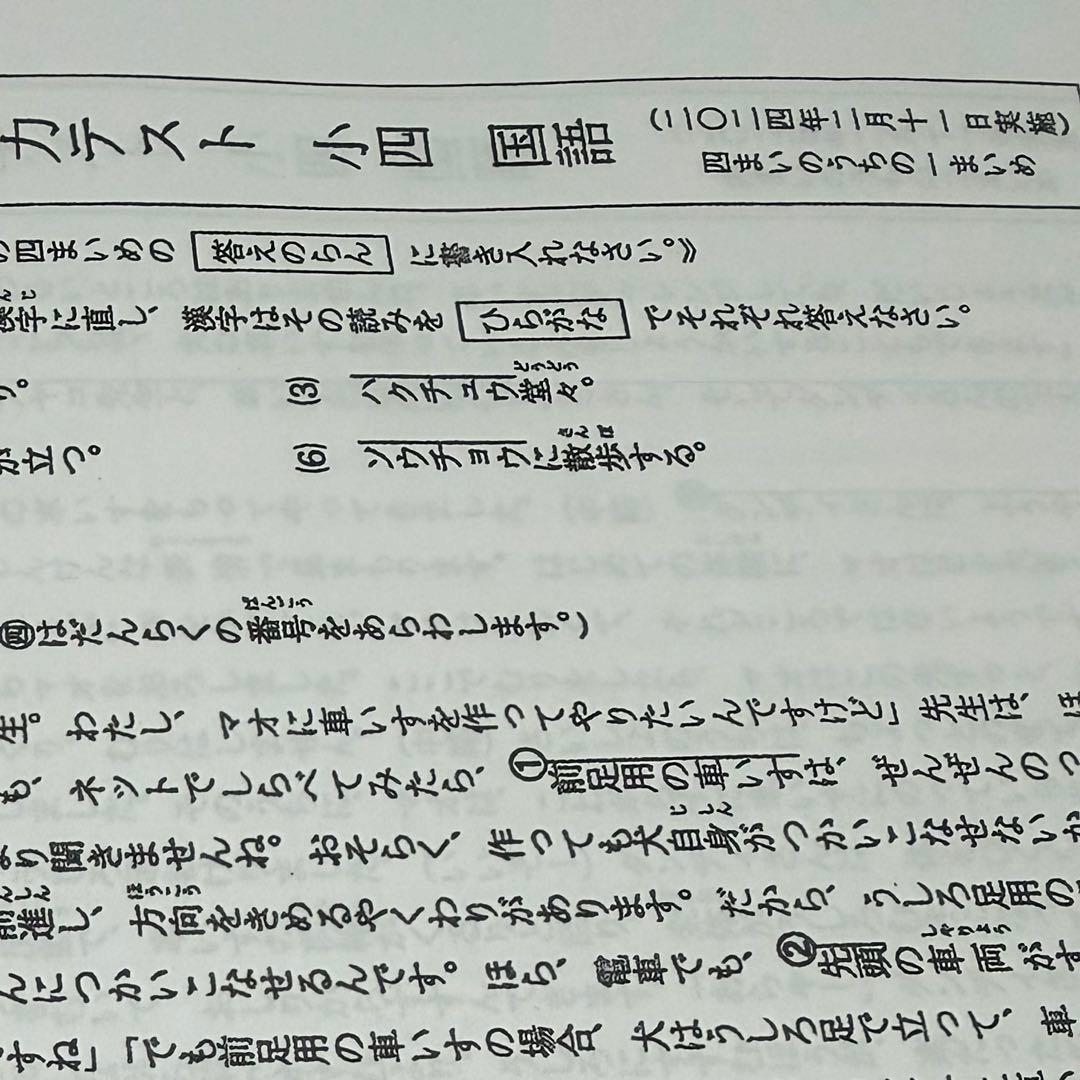 力テスト 小四 国語
(二〇二四年二月十一日実施)
四まいのうちの一まいめ
の四まいめの 答えのらん に書き入れなさい。》
漢字に直し、漢字はその読みを ひらがな でそれぞれ答えなさい。
り。 (3) ハクチュウ堂々。
どうどう
が立つ。 (6) ソウチョウに散歩する。
さんぽ
四はだんらくの番号をあらわします。)
ばんごう
生。わたし、マオに車いすを作ってやりたいんですけど」先生は、ほ
も、ネットでしらべてみたら、①前足用の車いすは、ぜんぜんのつ
まり聞きませんね。おそらく、作っても犬自身がつかいこなせないか
じしん
前進し、方向をきめるやくわりがあります。だから、うしろ足用の
んしん ほうこう
んにつかいこなせるんです。ほら、電車でも、②先頭の車両がす
しゃりょう
すね」「でも前足用の車いすの場合、犬はうしろ足で立って、車